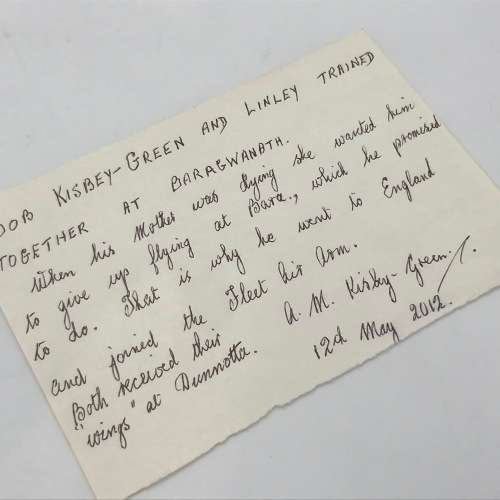 BOB KISBEY-GREEN AND LINLEY TRAINED
TOGETHER AT BARAGWANATH.
When his Mother was dying she wanted him
to give up flying at Bara., which he promised
to do. That is why he went to England
and joined the Fleet Air Arm.
Both received their
"wings" at Dunnottar.
A. M. Kisbey-Green.
12th May 2012.